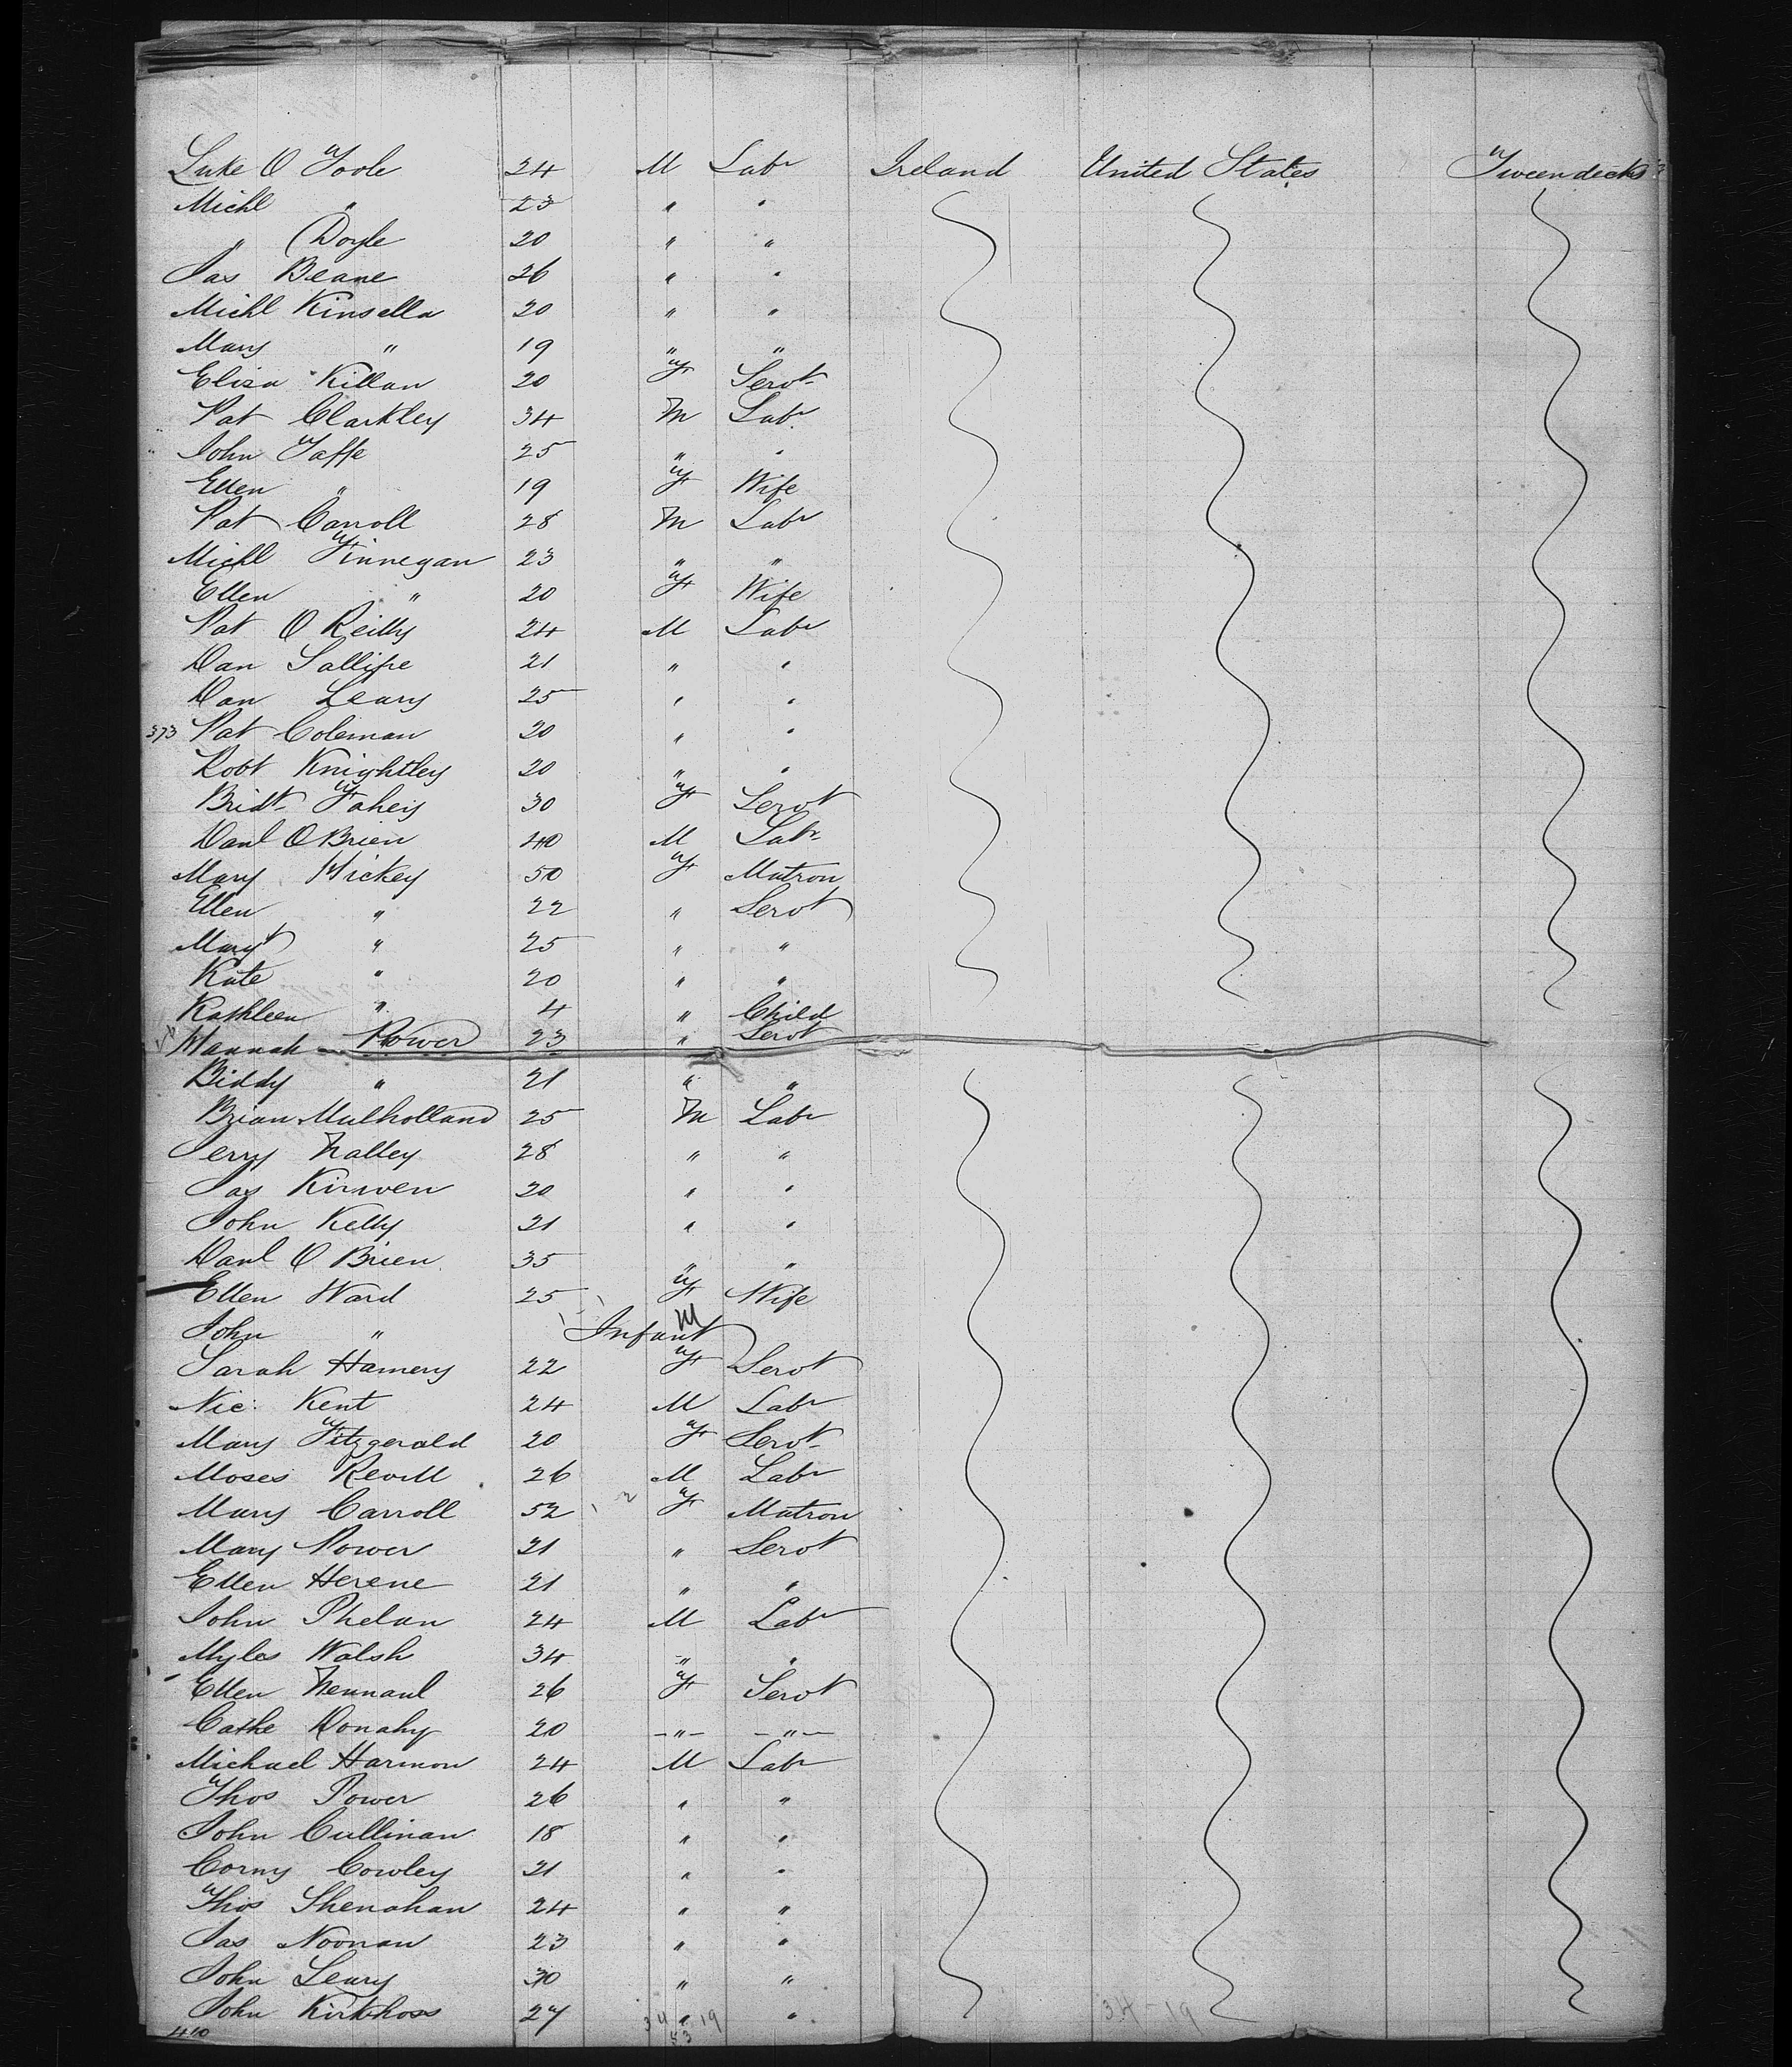 Luke O Toole 24 M Labr Ireland United States Tweendecks
Michl " 23 " "
" Doyle 20 " "
Jas Beane 26 " "
Michl Kinsella 20 " "
Mary " 19 " "
Eliza Killan 20 F Servt
Pat Clarkley 34 M Labr
John Taffe 25 " "
Ellen " 19 F Wife
Pat Carroll 28 M Labr
Michl Finnegan 23 " "
Ellen " 20 F Wife
Pat O Reilly 24 M Labr
Dan 21 " "
Dan Leary 25 " "
373 Pat Coleman 20 " "
Robt Knightley 20 " "
Bridt Fahey 30 F Servt
Danl O Brien 40 M Labr
Mary Hickey 50 F Matron
Ellen " 22 " Servt
Margt " 25 " "
Kate " 20 " "
Kathleen " 4 " Child
Hannah Power 23 " Servt
Biddy " 21 " "
Brian Mulholland 25 M Labr
Jerry Nalley 28 " "
Jas Kirwen 20 " "
John Kelly 21 " "
Danl O Brien 35 " "
Ellen Ward 25 F Wife
John " Infant M
Sarah Hamery 22 F Servt
Nic: Kent 24 M Labr
Mary Fitzgerald 20 F Servt
Moses Revill 26 M Labr
Mary Carroll 52 F Matron
Mary Power 21 " Servt
Ellen Herene 21 " "
John Phelan 24 M Labr
Myles Walsh 34 " "
Ellen 26 F Servt
Cathe Donahy 20 " "
Michael Harmon 24 M Labr
Thos Power 26 " "
John Cullinan 18 " "
Corny Cowley 21 " "
Thos Shenahan 24 " "
Jas Noonan 23 " "
John Leary 30 " "
John Kirkhoss 27 " "
34 19 34-19
410 53